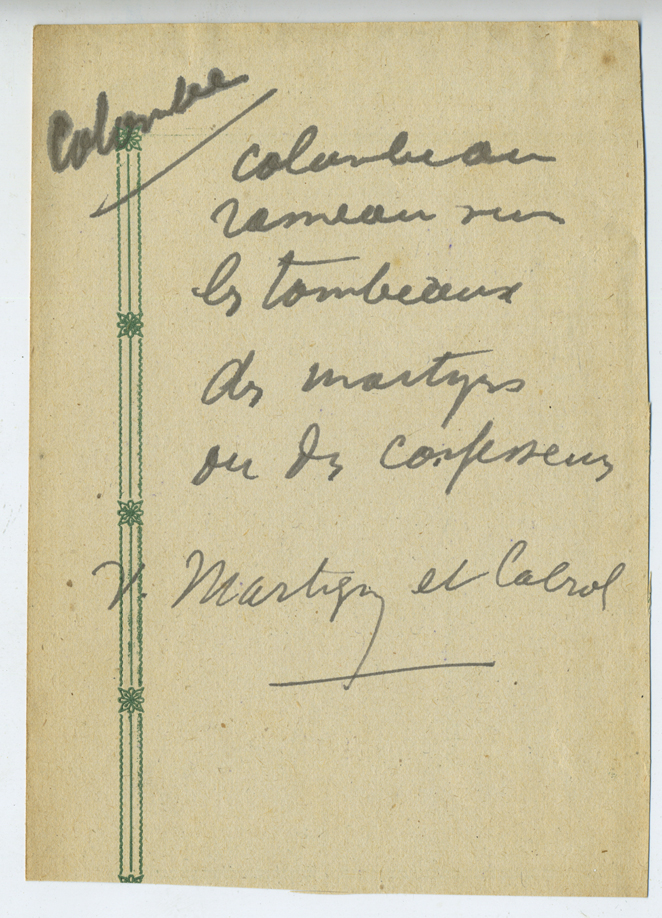 Colombe
colombe au
rameau sur
les tombeaux
des martyrs
ou des confesseurs
V. Martigny et Cabrol